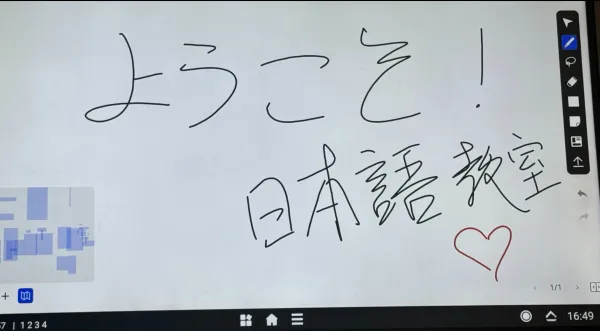 ようこそ!
日本語教室
1/1
7 | 1234
16:49